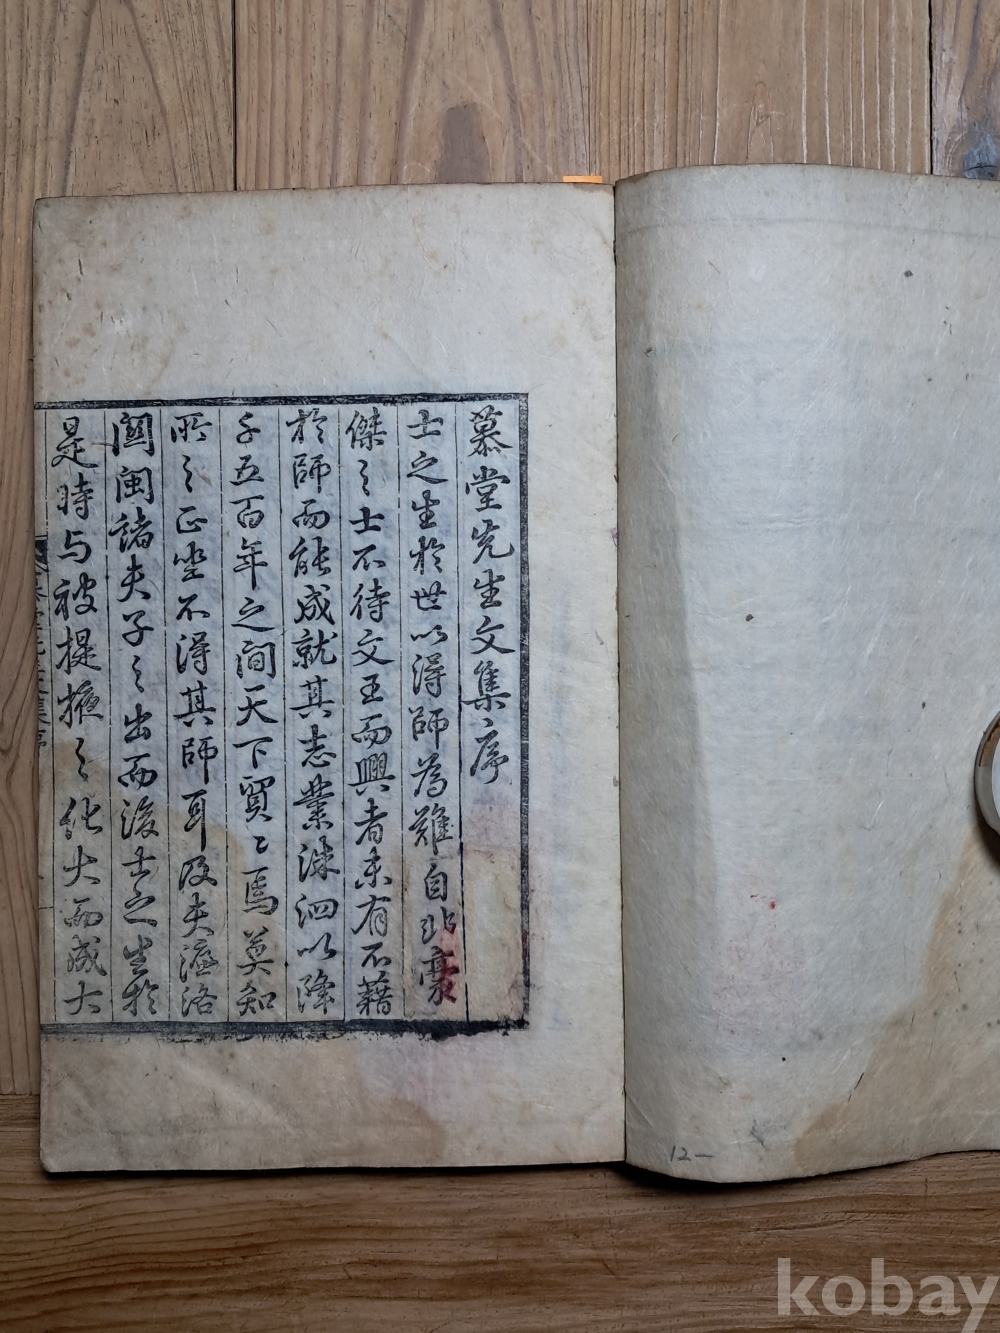 慕堂先生文集序
士之生於世以得師為難自非豪
傑之士不待文王而興者未有不藉
於師而能成就其志業洙泗以降
千五百年之間天下貿〻焉莫知
所之正坐不得其師耳及夫濂洛
關閩諸夫子之出而後士之生於
是時与被提掖之化大而成大
慕堂先生文集序
12-
kobay